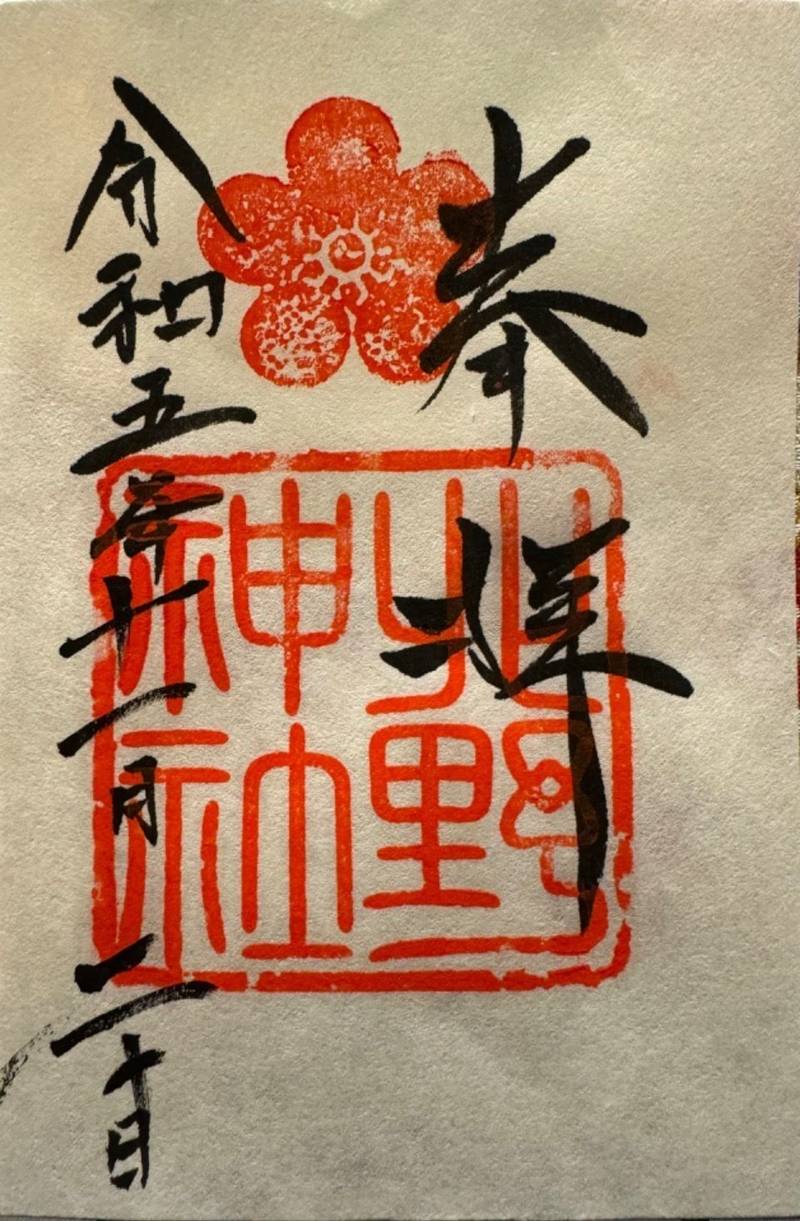 奉拝
北野
神社
令和五年十一月二十日